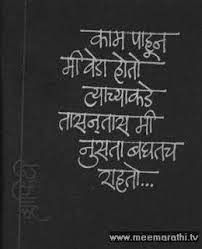 काम पाहून
मी वेडा होतो
त्याच्याकडे
तासन्‌तास मी
नुसता बघतच
राहतो...
www.meemarathi.tv